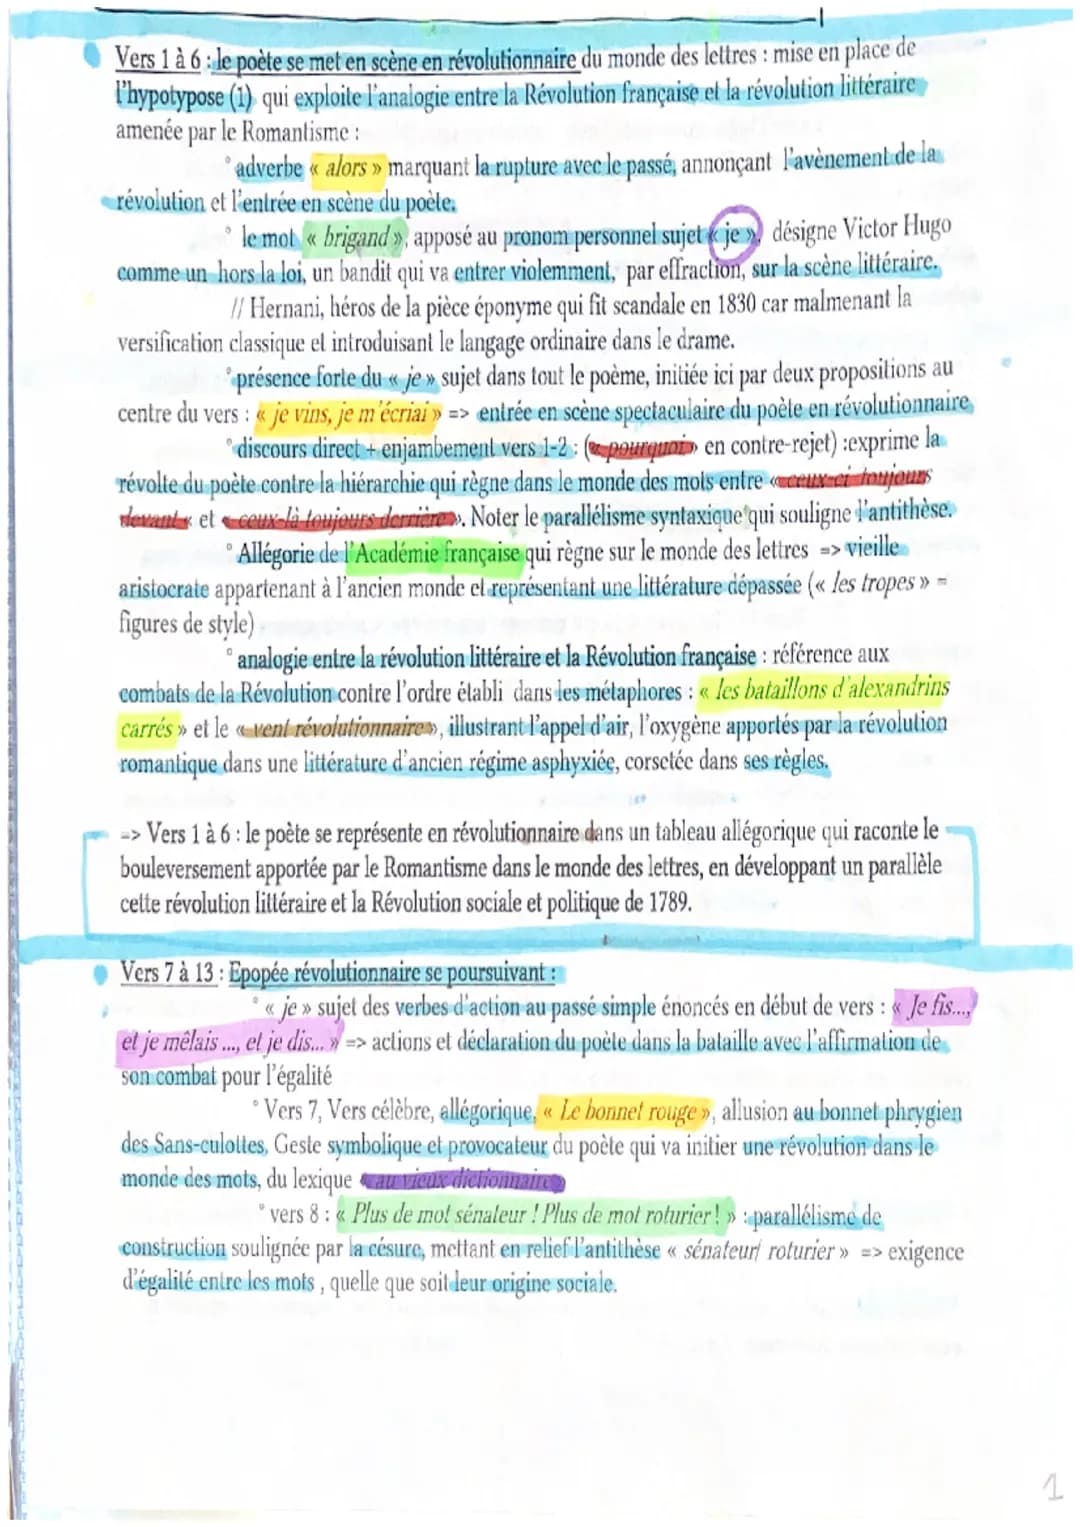 Vers 1 à 6 : le poète se met en scène en révolutionnaire du monde des lettres : mise en place de
l'hypotypose (1) qui exploite l'analogie entre la Révolution française et la révolution littéraire
amenée par le Romantisme :
° adverbe « alors » marquant la rupture avec le passé, annonçant l'avènement de la
révolution et l'entrée en scène du poète.
° le mot « brigand », apposé au pronom personnel sujet « je », désigne Victor Hugo
comme un hors la loi, un bandit qui va entrer violemment, par effraction, sur la scène littéraire.
// Hernani, héros de la pièce éponyme qui fit scandale en 1830 car malmenant la
versification classique et introduisant le langage ordinaire dans le drame.
° présence forte du « je » sujet dans tout le poème, initiée ici par deux propositions au
centre du vers : « je vins, je m'écriai » => entrée en scène spectaculaire du poète en révolutionnaire
° discours direct + enjambement vers 1-2 : (« pourquoi » en contre-rejet) :exprime la
révolte du poète contre la hiérarchie qui règne dans le monde des mots entre « ceux-ci toujours
devant « et « ceux-là toujours derrière ». Noter le parallélisme syntaxique qui souligne l'antithèse.
° Allégorie de l'Académie française qui règne sur le monde des lettres => vieille
aristocrate appartenant à l'ancien monde et représentant une littérature dépassée (« les tropes » =
figures de style)
° analogie entre la révolution littéraire et la Révolution française : référence aux
combats de la Révolution contre l'ordre établi dans les métaphores : « les bataillons d'alexandrins
carrés » et le « vent révolutionnaire », illustrant l'appel d'air, l'oxygène apportés par la révolution
romantique dans une littérature d'ancien régime asphyxiée, corsetée dans ses règles.
=> Vers 1 à 6 : le poète se représente en révolutionnaire dans un tableau allégorique qui raconte le
bouleversement apportée par le Romantisme dans le monde des lettres, en développant un parallèle
cette révolution littéraire et la Révolution sociale et politique de 1789.
Vers 7 à 13 : Epopée révolutionnaire se poursuivant :
° « je » sujet des verbes d'action au passé simple énoncés en début de vers : « Je fis...,
et je mêlais ..., et je dis... » => actions et déclaration du poète dans la bataille avec l'affirmation de
son combat pour l'égalité
° Vers 7, Vers célèbre, allégorique, « Le bonnet rouge », allusion au bonnet phrygien
des Sans-culottes, Geste symbolique et provocateur du poète qui va initier une révolution dans le
monde des mots, du lexique « au vieux dictionnaire »
° vers 8 : « Plus de mot sénateur ! Plus de mot roturier ! » : parallélisme de
construction soulignée par la césure, mettant en relief l'antithèse « sénateur/ roturier » => exigence
d'égalité entre les mots , quelle que soit leur origine sociale.
1